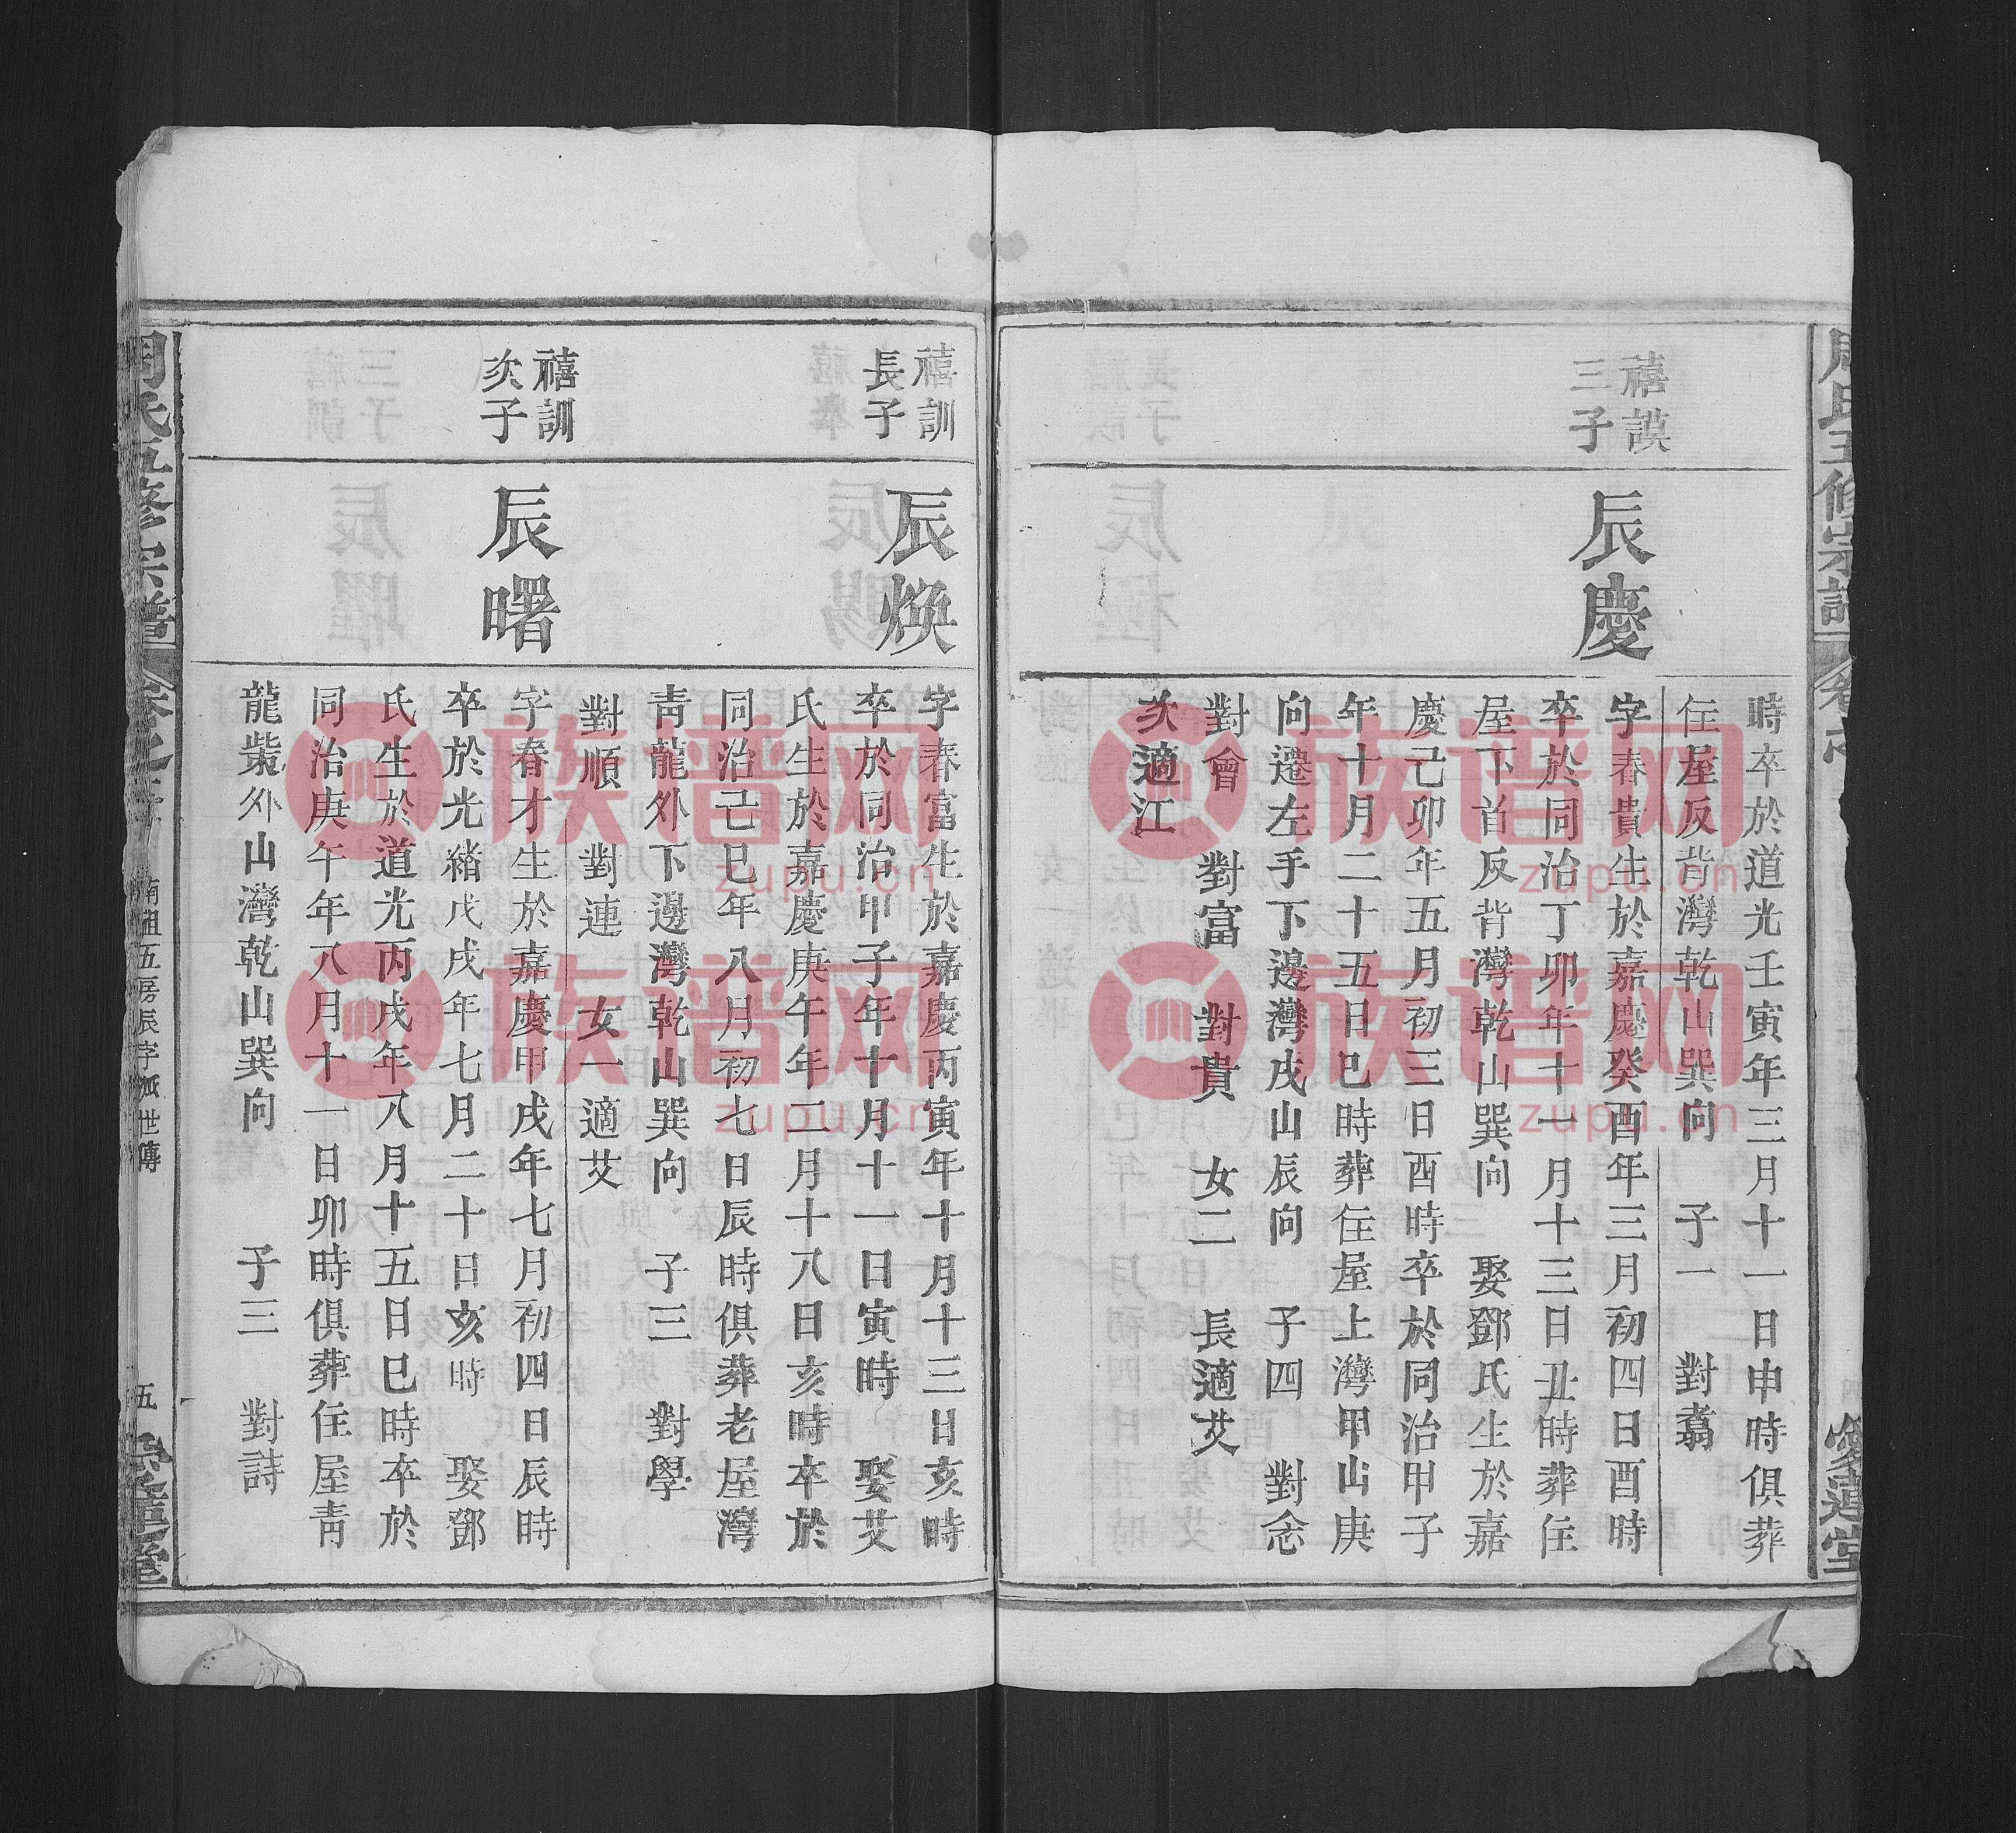 時卒於道光壬寅年三月十一日申時俱葬
住屋反背灣乾山巽向 子一 對翥
禧謨
三子
辰慶
字春貴生於嘉慶癸酉年三月初四日酉時
卒於同治丁卯年十一月十三日丑時葬住
屋下首反背灣乾山巽向 娶鄧氏生於嘉
慶己卯年五月初三日酉時卒於同治甲子
年十月二十五日巳時葬住屋上灣甲山庚
向遷左手下邊灣戌山辰向 子四 對念
對會 對富 對貴 女二 長適艾
次適江
禧訓
長子
辰煥
字春富生於嘉慶丙寅年十月十三日亥時
卒於同治甲子年十月十一日寅時 娶艾
氏生於嘉慶庚午年二月十八日亥時卒於
同治己巳年八月初七日辰時俱葬老屋灣
青龍外下邊灣乾山巽向 子三 對學
對順 對連 女一適艾
禧訓
次子
辰曙
字春才生於嘉慶甲戌年七月初四日辰時
卒於光緒戊戌年七月二十日亥時 娶鄧
氏生於道光丙戌年八月十五日巳時卒於
同治庚午年八月十一日卯時俱葬住屋青
龍柴外山灣乾山巽向 子三 對詩
周氏五修宗譜
南祖五房辰字派世傳
五
愛蓮堂
周氏五修宗譜
愛蓮堂
族谱网
zupu.cn
族谱网
zupu.cn
族谱网
zupu.cn
族谱网
zupu.cn